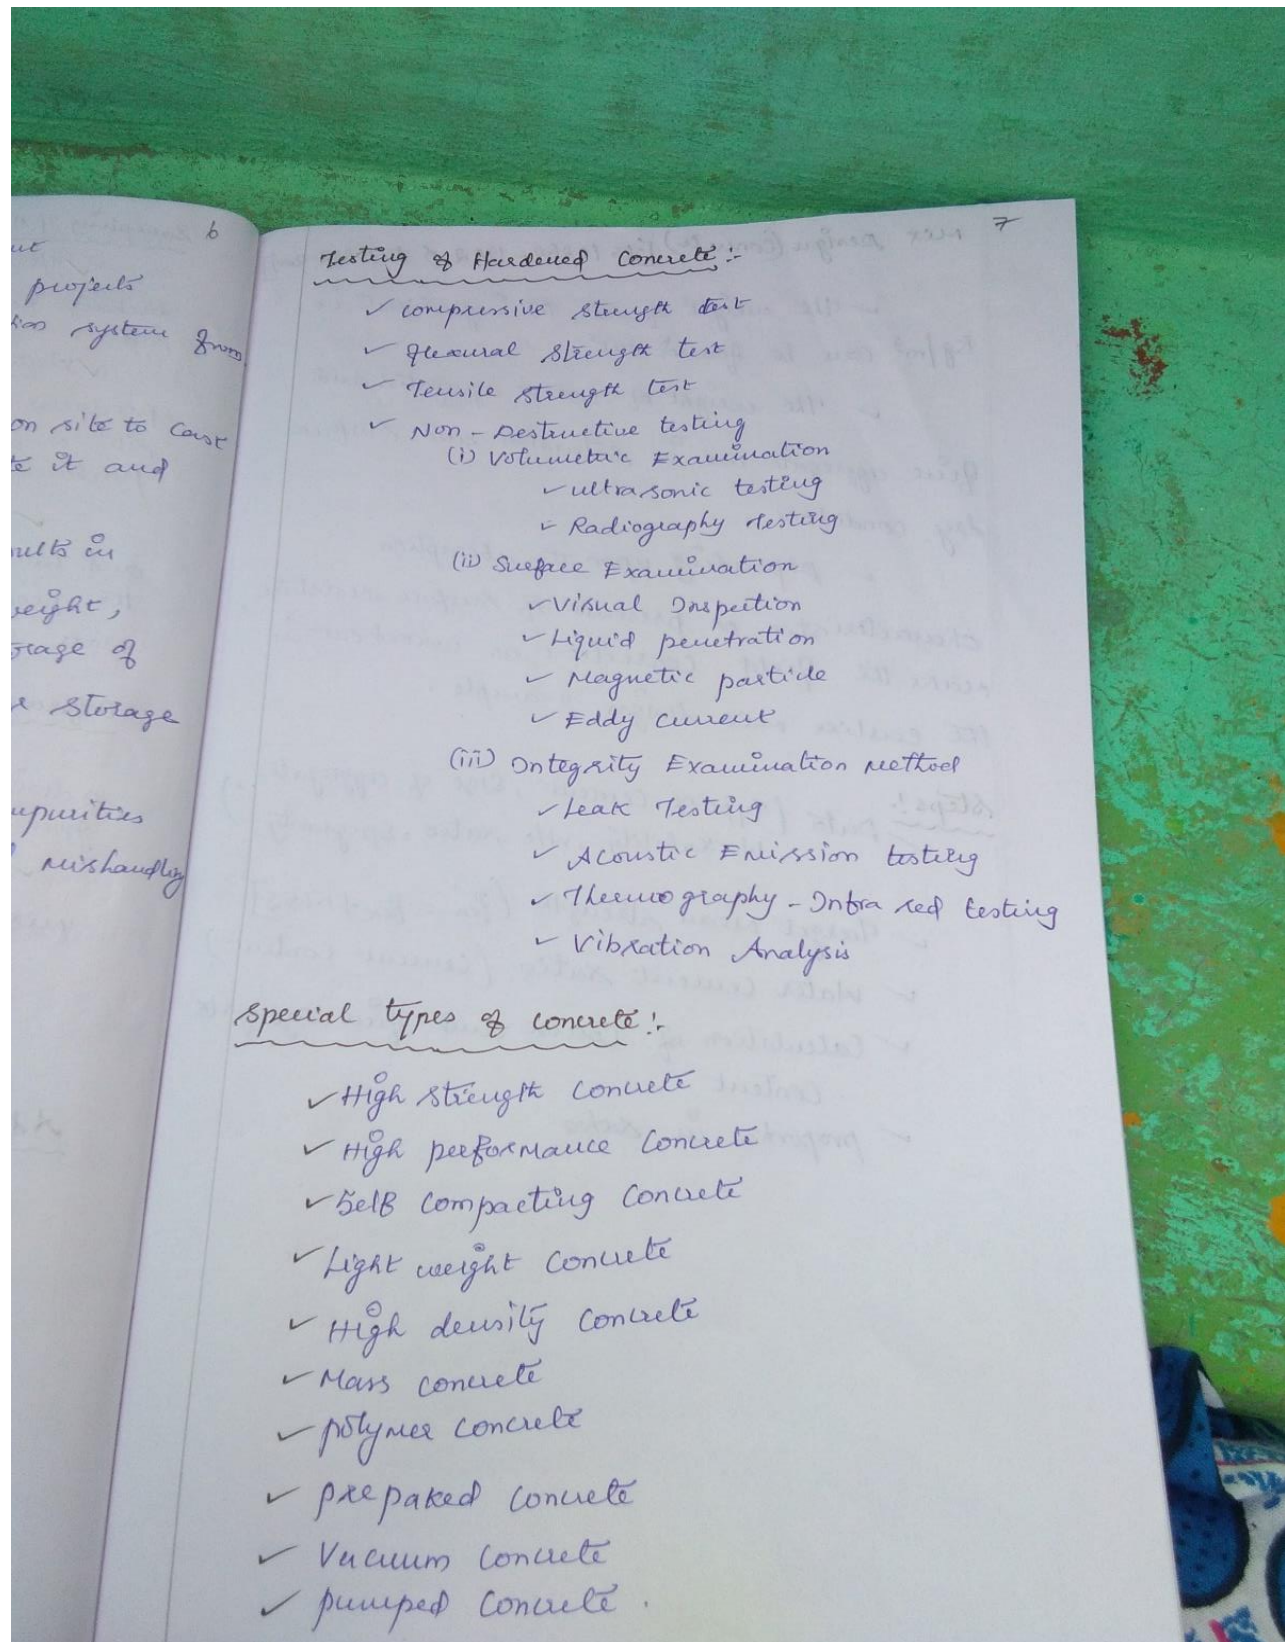 6
ut
projects
system from
on site to cast
te it and
ults in
weight,
rage of
storage
mpurities
mishandling
7
Testing of Hardened Concrete:-
✓ compressive strength test
✓ flexural strength test
✓ Tensile strength test
✓ Non-Destructive testing
(i) Volumetric Examination
✓ ultrasonic testing
✓ Radiography testing
(ii) Surface Examination
✓ Visual Inspection
✓ Liquid penetration
✓ Magnetic particle
✓ Eddy current
(iii) Integrity Examination method
✓ Leak Testing
✓ Acoustic Emission testing
✓ Thermography - Infra red testing
✓ Vibration Analysis
Special types of concrete:-
✓ High strength concrete
✓ High performance concrete
✓ Self compacting concrete
✓ Light weight concrete
✓ High density concrete
✓ Mass concrete
✓ polymer concrete
✓ prepaked concrete
✓ Vacuum concrete
✓ pumped concrete.